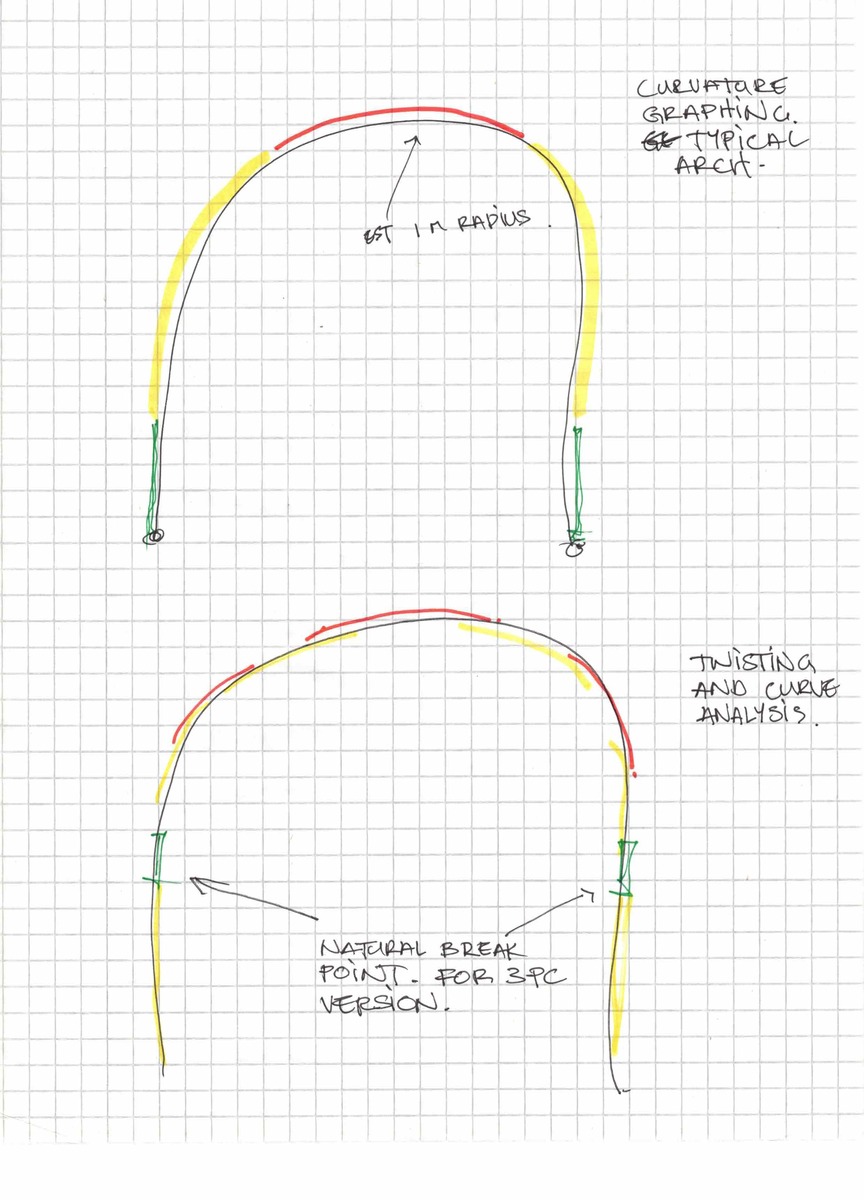 CURVATURE
GRAPHING.
TYPICAL
ARCH-
EST 1 M RADIUS.
TWISTING
AND CURVE
ANALYSIS.
NATURAL BREAK
POINT. FOR 3PC
VERSION.